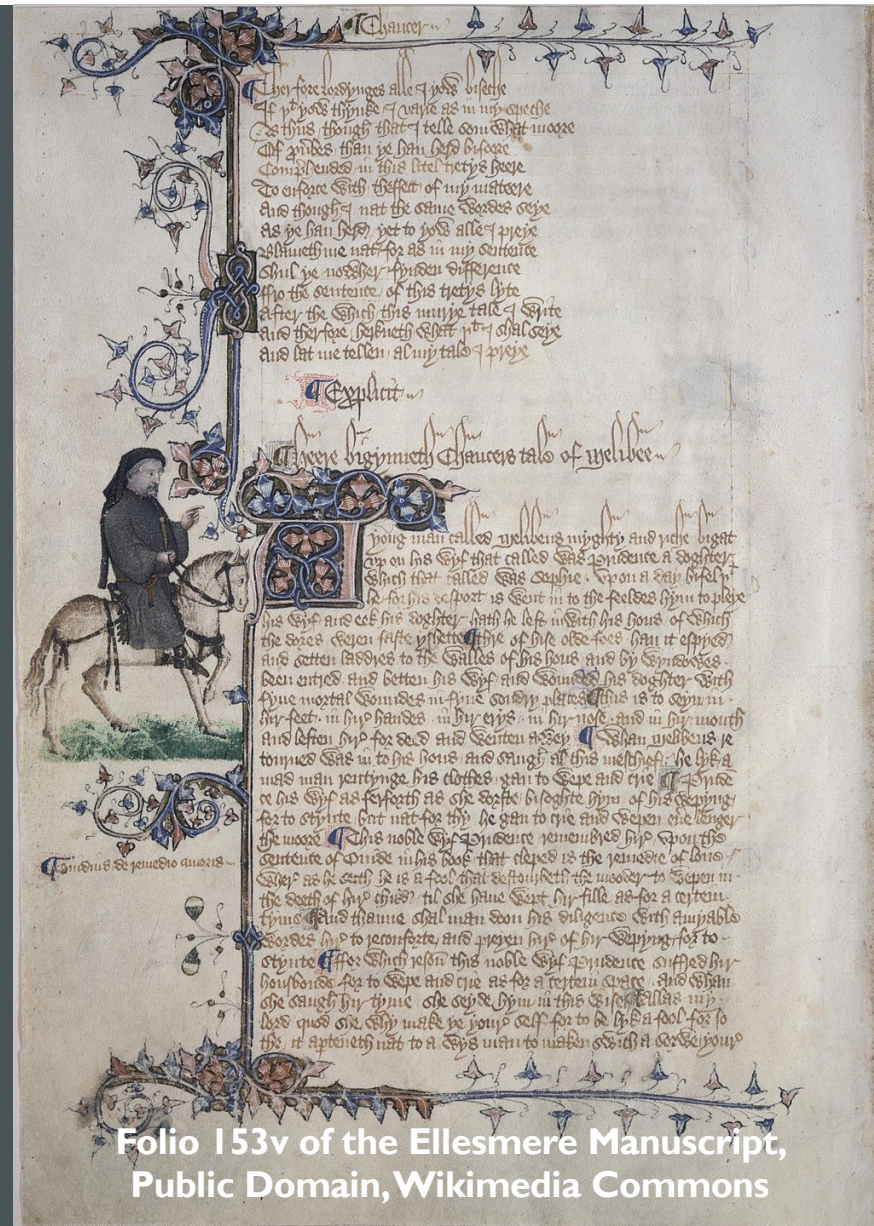 Chaucer
Therfore lordynges alle I yow biseche
If þt yow thynke I varie as in my speche
As thus though that I telle som what moore
Of prouerbes than ye han herd bifoore
Comprehended in this litel tretys heere
To enforce with theffect of my mateere
And though I nat the same wordes seye
As ye han herd yet to yow alle I preye
Blameth me nat for as in my sentence
Shul ye nowher fynden difference
ffro the sentence of this tretys lyte
After the which this murye tale I write
And therfore herkneth what þt I shal seye
And lat me tellen al my tale I preye
¶ Explicit
¶ Heere bigynneth Chaucers tale of Melibee
A yong man called Melibeus myghty and riche bigat
vp on his wyf that called was Prudence a doghter
which that called was Sophie . vpon a day bifel þt
he for his desport is went in to the feeldes hym to pleye
his wyf and eek his doghter hath he left inwith his hous of which
the dores weren faste yshette ¶ thre of hise olde foes han it espyed
and setten laddres to the walles of his hous and by wyndowes
been entred and betten his wyf and wounded his doghter with
fyue mortal woundes in fyue sondry places ¶ This is to seyn in
hir feet . in hir handes . in hir erys . in hir nose . and in hir mouth
and leften hir for deed and wenten awey ¶ Whan Melibeus re
tourned was in to his hous and saugh al this meschief . he lyk a
mad man rentynge his clothes gan to wepe and crie ¶ Pruden
ce his wyf as ferforth as she dorste bisoghte hym of his wepyng
for to stynte but nat for thy he gan to crie and wepen euere lenger
the moore ¶ This noble wyf Prudence remembred hir vpon the
sentence of Ouide in his book that cleped is the remedie of loue
wher as he seith he is a fool that destourbeth the mooder to wepen in
the deeth of hir child til she haue wept hir fille as for a certein
tyme ¶ And thanne shal man doon his diligence with amyable
wordes hir to reconforte and preyen hir of hir wepyng for to
stynte ¶ ffor which reson this noble wyf Prudence suffred hir
housbonde for to wepe and crie as for a certein space . and whan
she saugh hir tyme she seyde hym in this wise ¶ Allas my
lord quod she why make ye your self for to be lyk a fool for so
the it aperteneth nat to a wys man to maken swich a sorwe your
¶ Ouidius de remedio amoris
Folio 153v of the Ellesmere Manuscript,
Public Domain, Wikimedia Commons